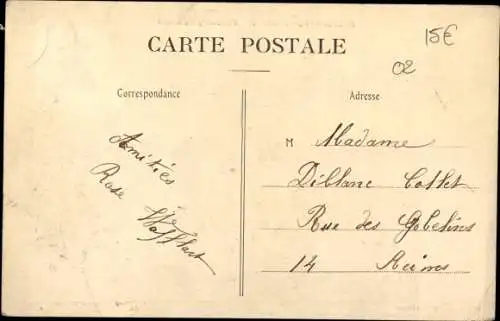 15€
CARTE POSTALE
02
Correspondance
Adresse
Amitiés
Rose
M Madame
Diblanc Collet
Rue des Gobelins
14 Reims